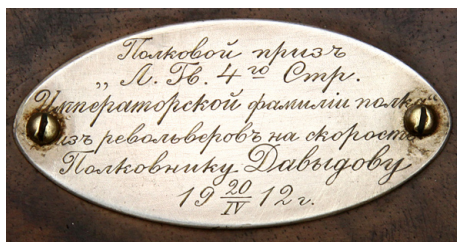 Полковой призъ
„Л. Гв. 4го Стр.
Императорской фамиліи полка“
изъ револьверовъ на скорость
Полковнику Давыдову
19 20/IV 12 г.